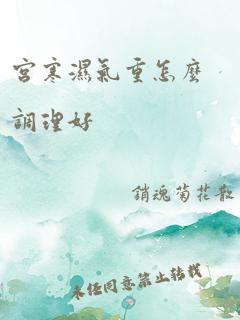 宮寒濕氣重怎麼
調理好
銷魂菊花散
未任同意禁止转载